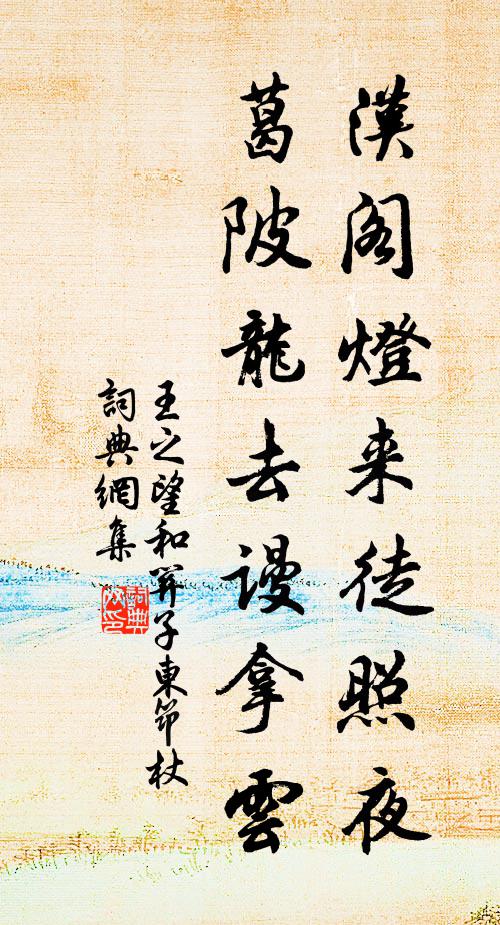 漢阁燈来徒照夜
葛陂龍去謾拿雲
王之望和羿子東筇杖
詞典網集